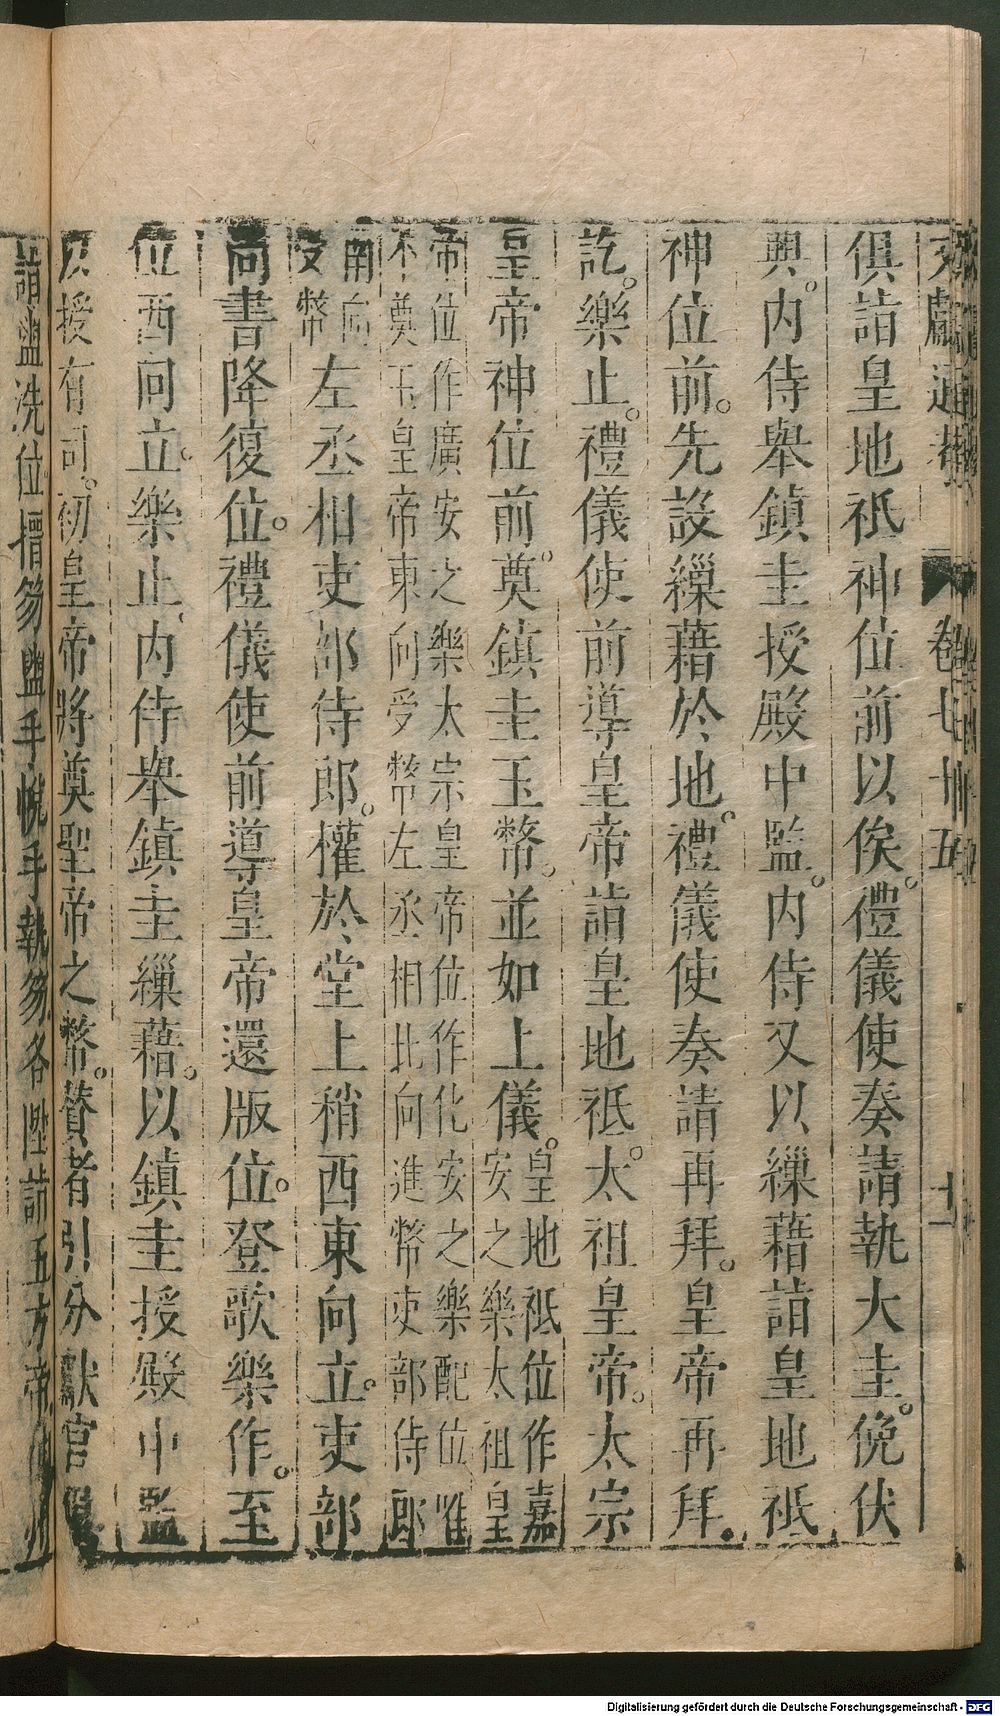 文獻通考 卷七十五 十一
俱詣皇地祇神位前以俟禮儀使奏請執大圭俛伏
興內侍舉鎮圭授殿中監內侍又以繅藉詣皇地祇
神位前先設繅藉於地禮儀使奏請再拜皇帝再拜
訖樂止禮儀使前導皇帝詣皇地祇太祖皇帝太宗
皇帝神位前奠鎮圭玉幣並如上儀皇地祇位作嘉
安之樂太祖皇
帝位作廣安之樂太宗皇帝位作化安之樂配位惟
不奠玉皇帝東向受幣左丞相北向進幣吏部侍郎
南向
受幣左丞相吏部侍郎權於堂上稍西東向立吏部
尚書降復位禮儀使前導皇帝還版位登歌樂作至
位西向立樂止內侍舉鎮圭繅藉以鎮圭授殿中監
以授有司初皇帝將奠聖帝之幣贊者引分獻官
詣盥洗位搢笏盥手帨手執笏各陞詣五方帝
Digitalisierung gefördert durch die Deutsche Forschungsgemeinschaft - DFG